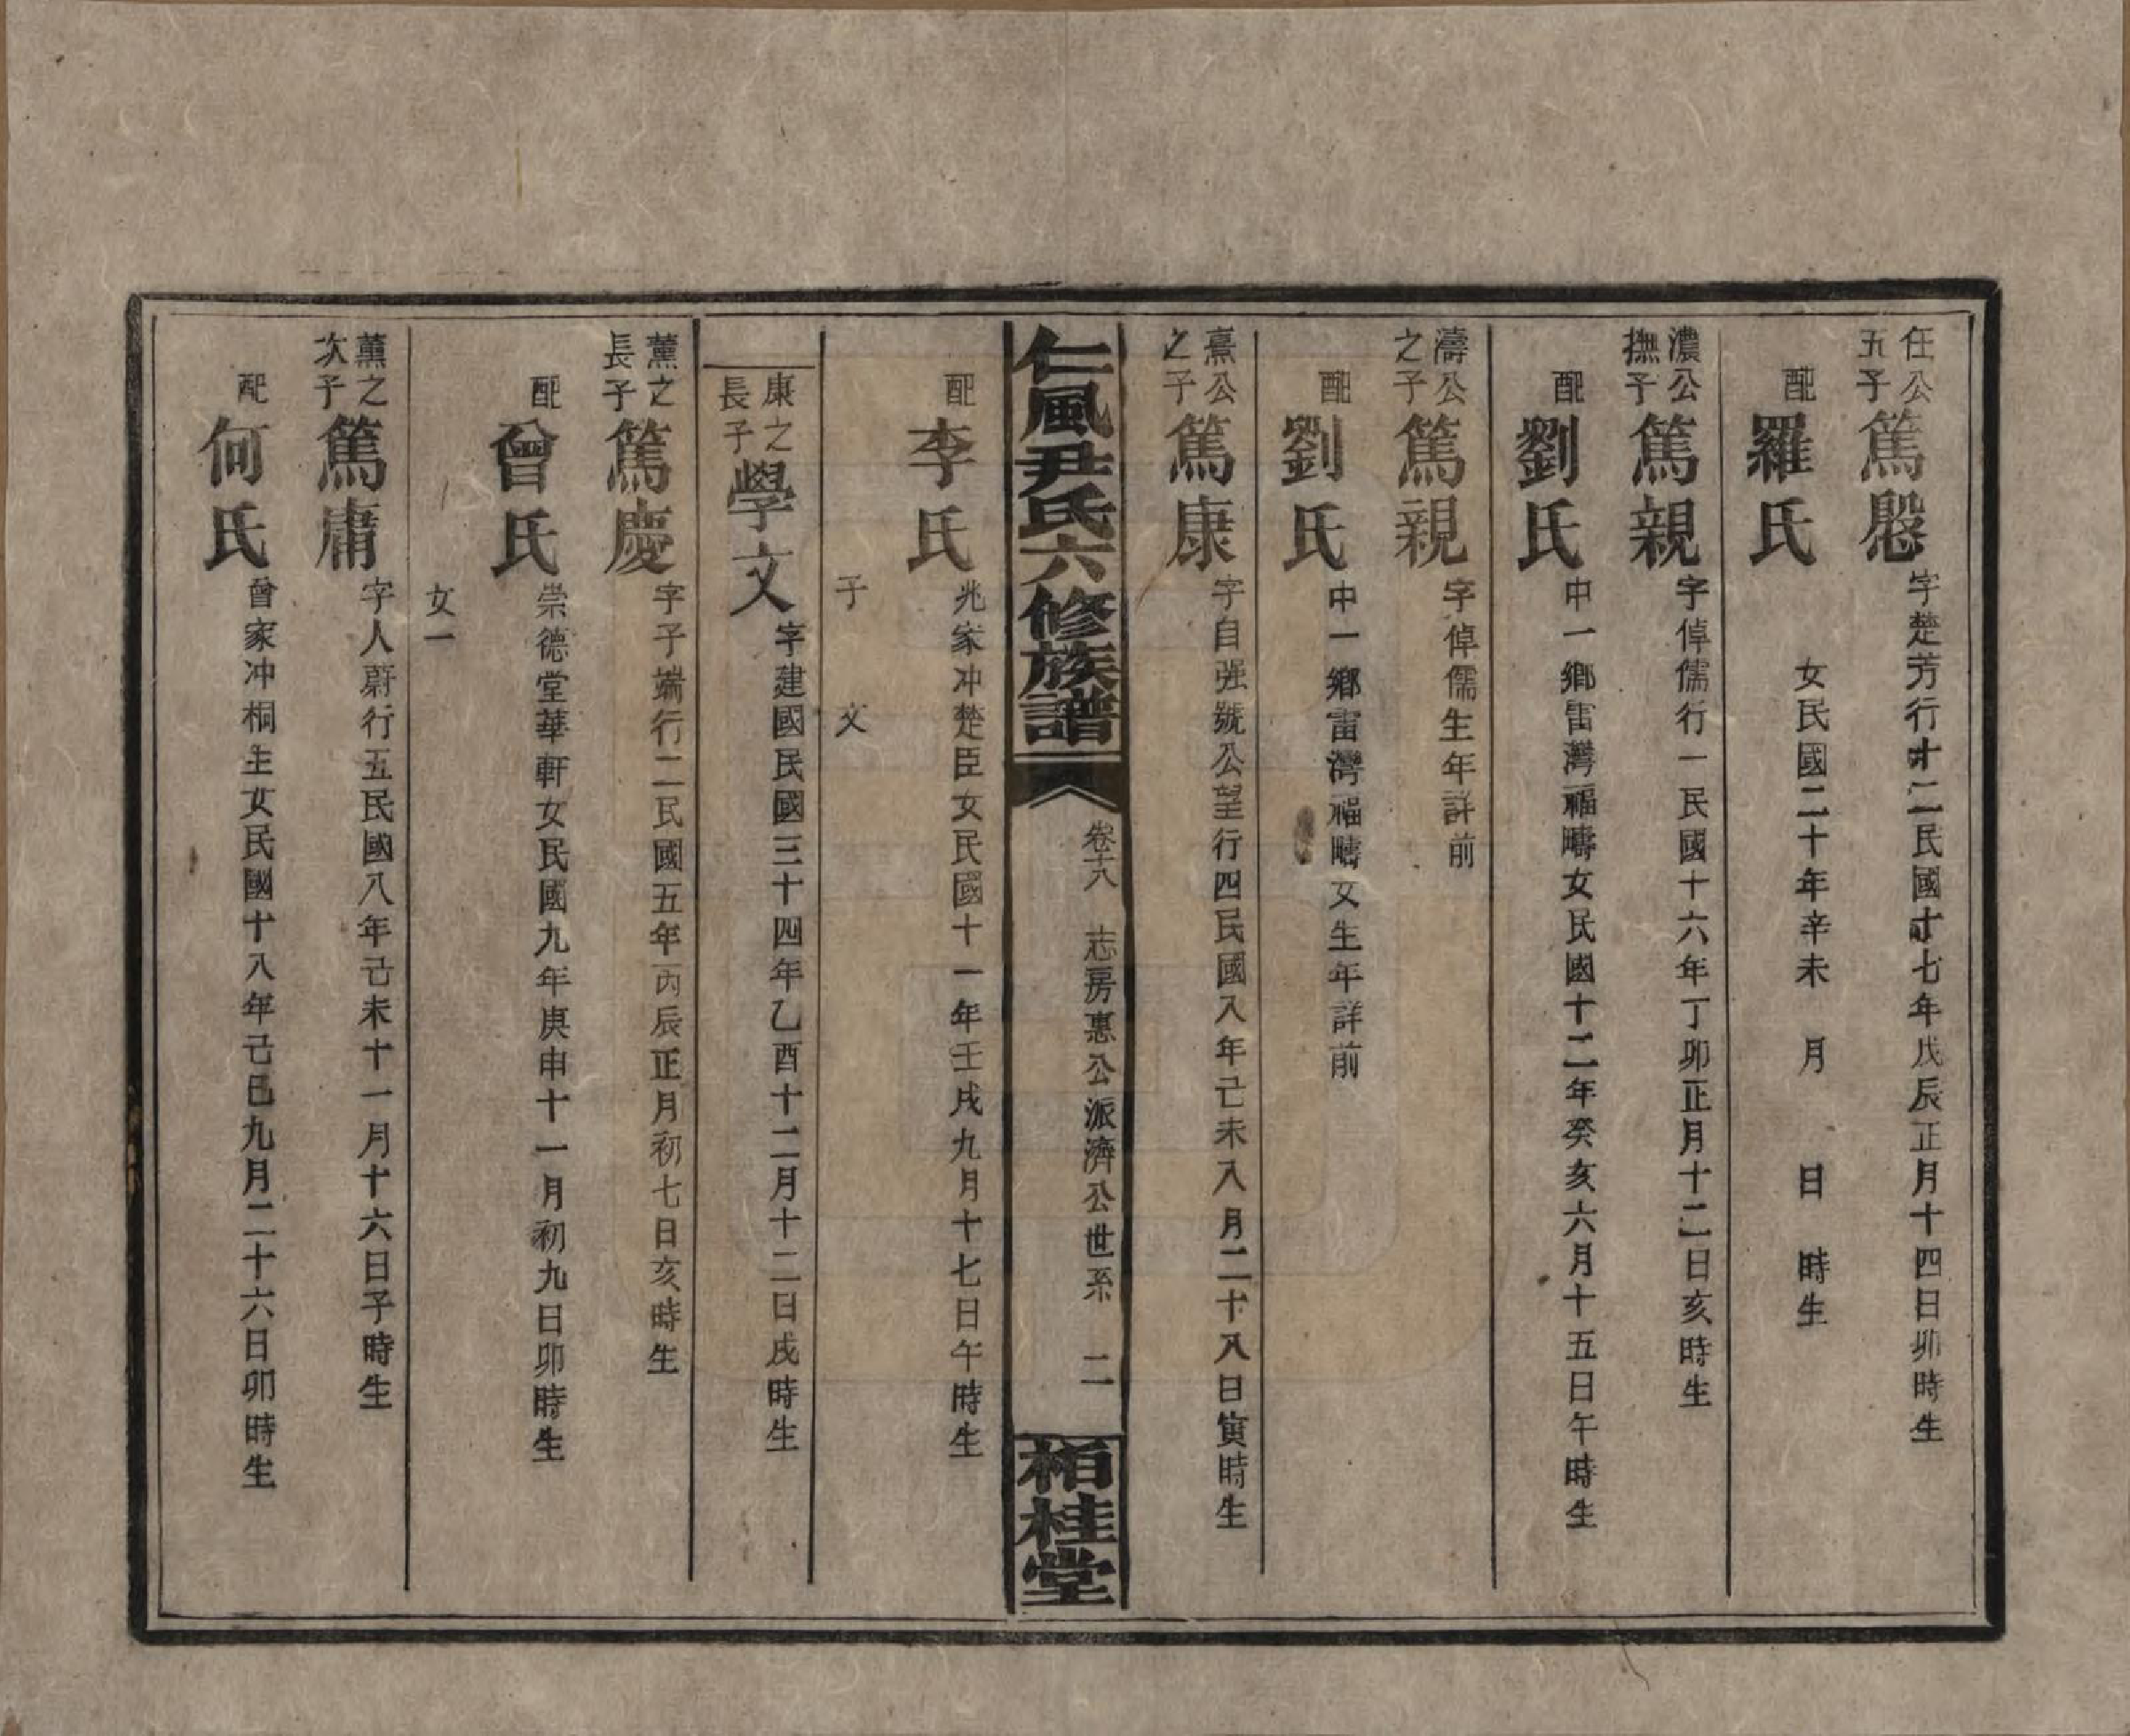 任公五子 篤慇 字楚芳行十二民國十七年戊辰正月十四日卯時生
配 羅氏 女民國二十年辛未 月 日 時生
濃公撫子 篤親 字倬儒行一民國十六年丁卯正月十二日亥時生
配 劉氏 中一鄉雷灣福疇女民國十二年癸亥六月十五日午時生
濤公之子 篤親 字倬儒生年詳前
配 劉氏 中一鄉雷灣福疇女生年詳前
熹公之子 篤康 字自强號公望行四民國八年己未八月二十八日寅時生
仁風尹氏六修族譜 卷十八 志房惠公派濟公世系 二 栢桂堂
配 李氏 兆家冲楚臣女民國十一年壬戌九月十七日午時生
子 文
康之長子 學文 字建國民國三十四年乙酉十二月十二日戌時生
薰之長子 篤慶 字子端行二民國五年丙辰正月初七日亥時生
配 曾氏 崇德堂華軒女民國九年庚申十一月初九日卯時生
女一
薰之次子 篤庸 字人蔚行五民國八年己未十一月十六日子時生
配 何氏 曾家冲桐生女民國十八年己巳九月二十六日卯時生